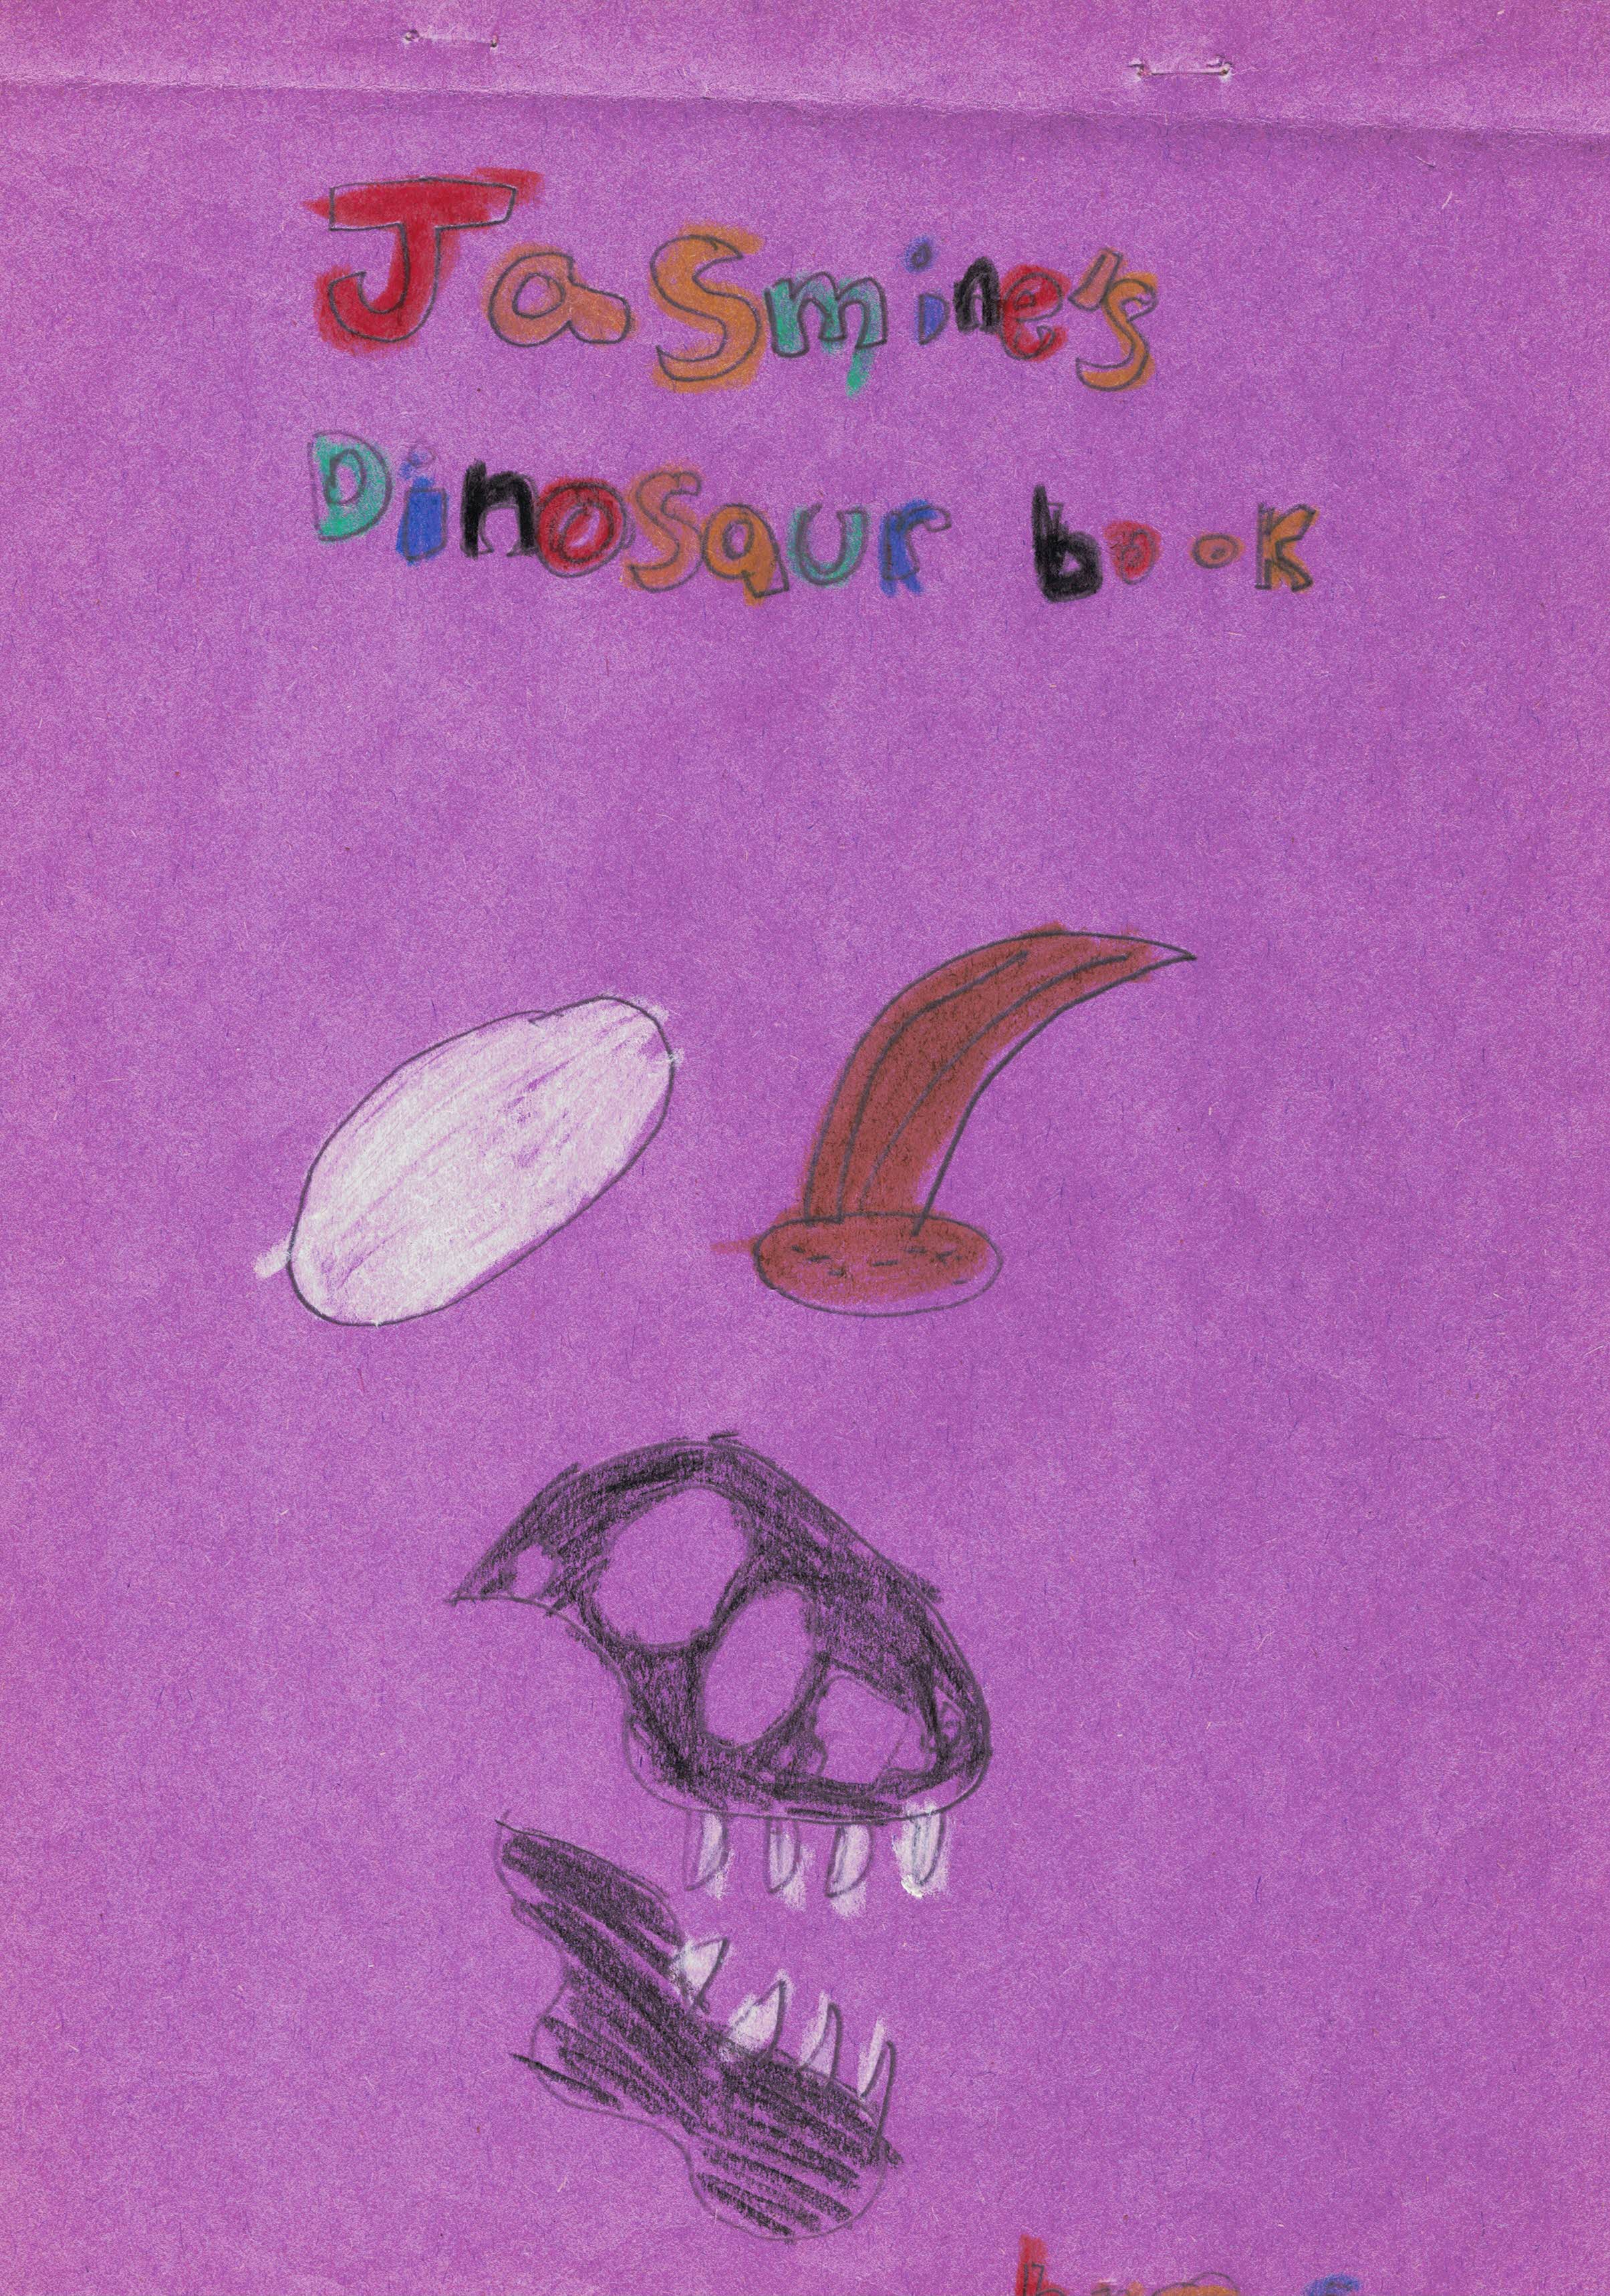 Jasmine's
Dinosaur book